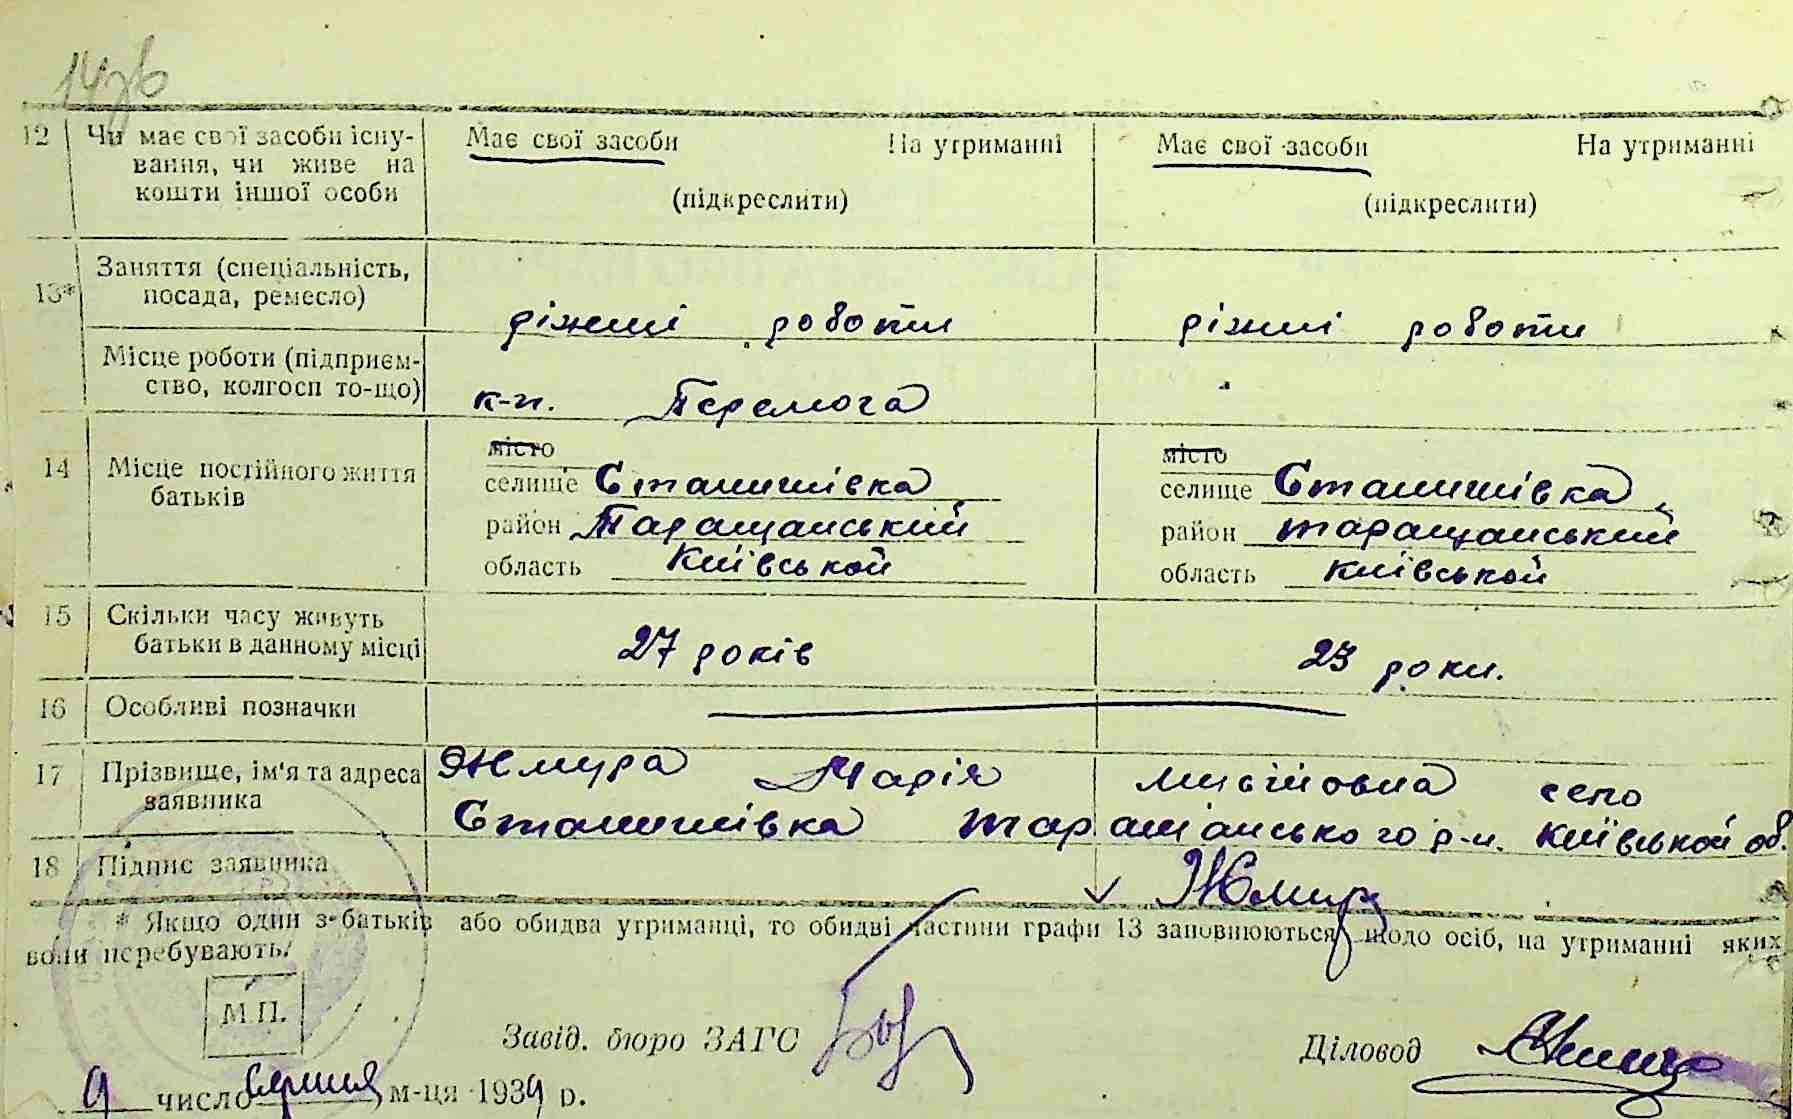 143в
12 Чи має свої засоби існу- Має свої засоби На утриманні Має свої засоби На утриманні
вання, чи живе на
кошти іншої особи (підкреслити) (підкреслити)
Заняття (спеціальність,
13* посада, ремесло) ріжні роботи ріжні роботи
Місце роботи (підприєм-
ство, колгосп то-що) к-п. Перемога
місто місто
14 Місце постійного життя селище Станишівка селище Станишівка
батьків район Таращанський район таращанський
область Київської область київської
15 Скільки часу живуть
батьки в данному місці 27 років 23 роки.
16 Особливі позначки
17 Прізвище, ім'я та адреса Жмура Марія мусійовна село
заявника Станишівка таращанського р-н. київської об.
18 Підпис заявника Жмура
* Якщо один з батьків або обидва утриманці, то обидві частини графи 13 заповнюються щодо осіб, на утриманні яких
вони перебувають.
М.П.
Завід. бюро ЗАГС Діловод
9 число серпня м-ця 1939 р.